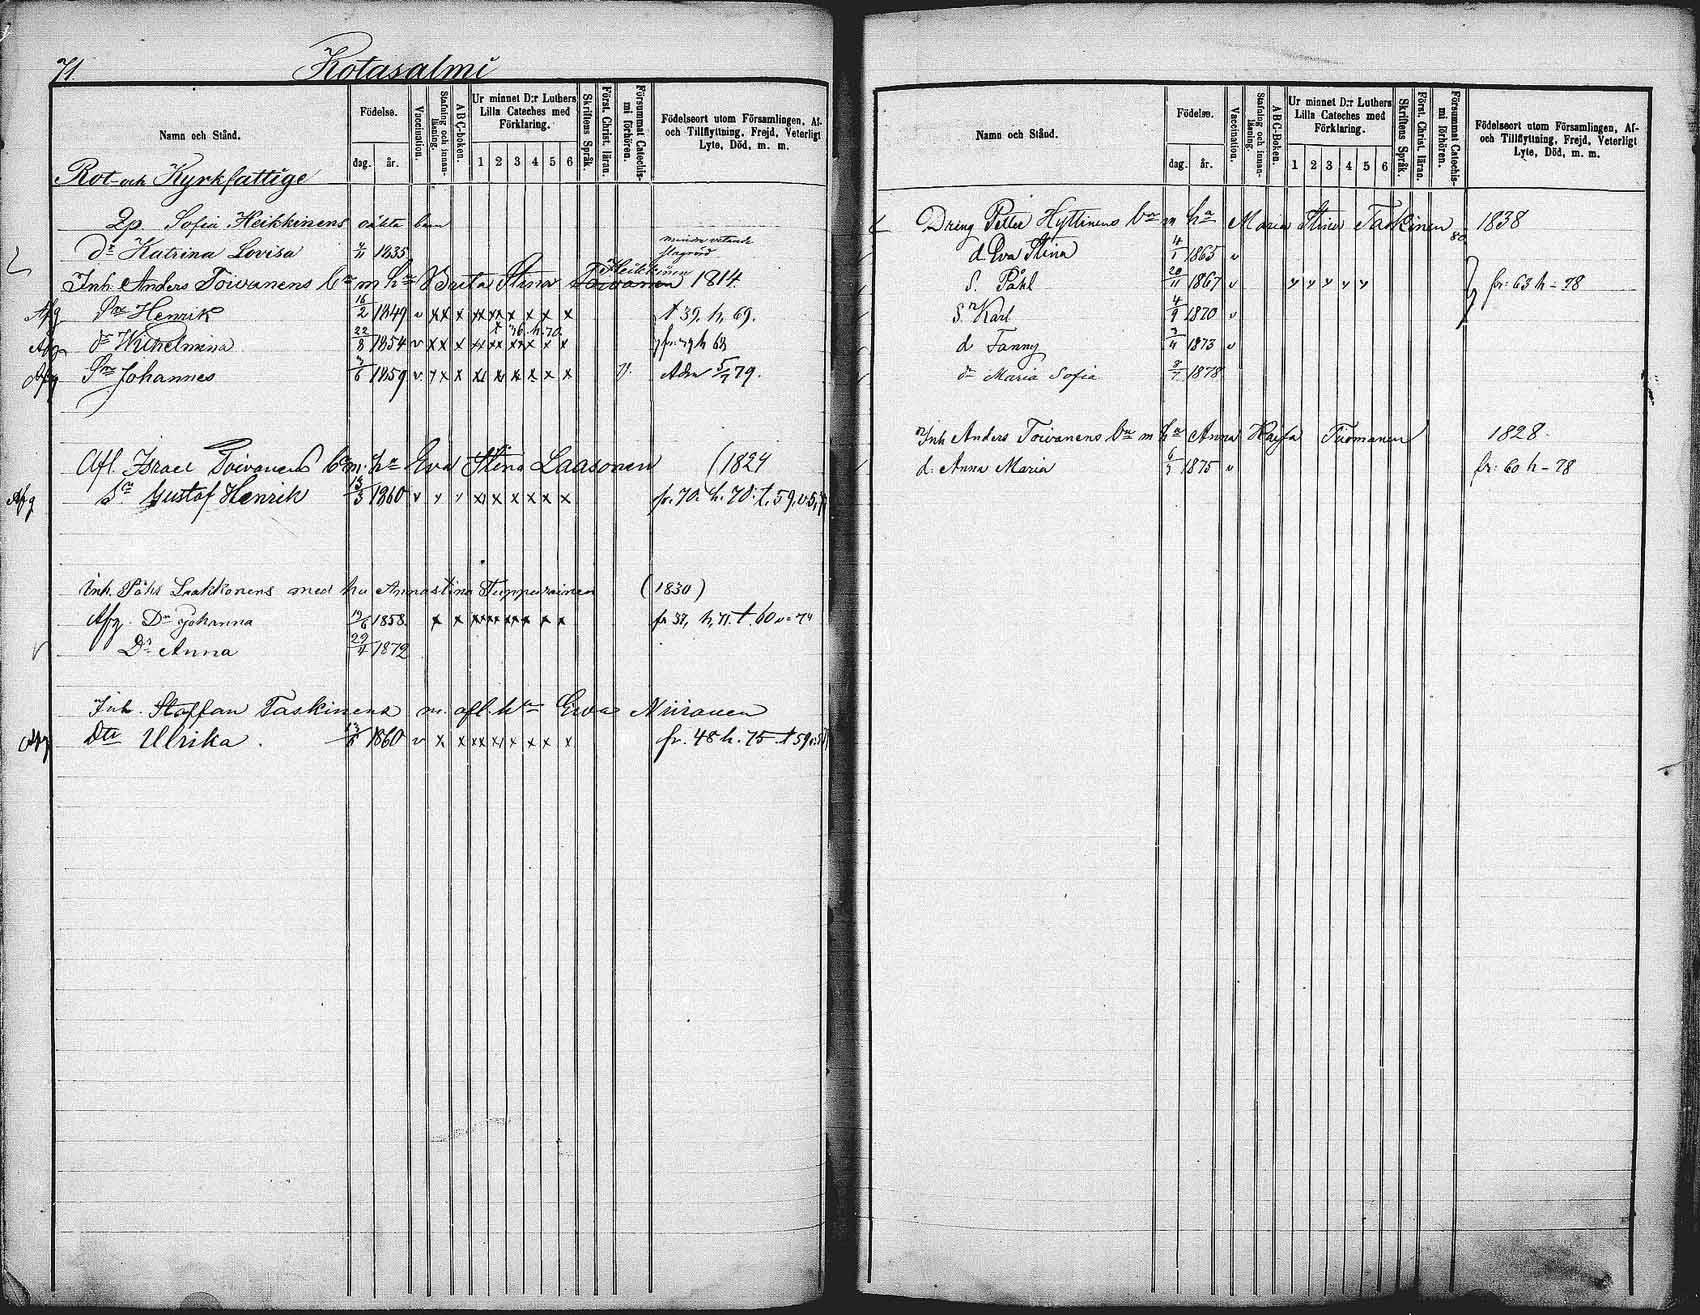 71.
Kotasalmi
Namn och Stånd.
Födelse.
dag.
år.
Vaccination.
Stafning och innan-läsning.
ABC-boken.
Ur minnet D:r Luthers
Lilla Cateches med
Förklaring.
1 2 3 4 5 6
Skriftens Språk.
Först. Christ. läran.
Försummat Catechis-
mi förhören.
Födelseort utom Församlingen, Af-
och Tillflyttning, Frejd, Veterligt
Lyte, Död, m. m.
Rot- och Kyrkfattige
Sofia Heikkinens oäkta barn
Dr Katrina Lovisa 1835 mindre vetande
Heikkinen
Inh. Anders Toivanens m Stina Toivanen 1814
Afg Henrik 16/2 1849 v x x x x x x x x x t 39. h, 69.
Afg dr Wilhelmina 22/8 1854 v x x x x x x x x x h 68
Afg Johannes 1859 v x x x x x x x x x 79.
Afl. Israel Toivanens m. hu Eva Stina Laasonen (1824
Afg Gustaf Henrik 1860 v v v x x x x x x fr. 70. h. 78. t. 59.
Inh. Påhl Laakkonens med hu Annastina Tuppurainen (1830)
Afg. Dr Johanna 1858 x x x x x x x x fr 37, h, 71. t 60
Dr Anna 29/4 1872
Inh. Staffan Taskinens m. afl. hu Ewa Niiranen
Afg Dtr Ulrika. 1860 v x x x x x x x x fr. 48 h. 75. t 59
Namn och Stånd.
Födelse.
dag.
år.
Vaccination.
Stafning och innan-läsning.
ABC-boken.
Ur minnet D:r Luthers
Lilla Cateches med
Förklaring.
1 2 3 4 5 6
Skriftens Språk.
Först. Christ. läran.
Försummat Catechis-
mi förhören.
Födelseort utom Församlingen, Af-
och Tillflyttning, Frejd, Veterligt
Lyte, Död, m. m.
Dreng Petter Hyttinens m hu Maria Stina Taskinen 80. 1838
d. Eva Stina 4/1 1865 v
S. Påhl 20/11 1867 v v v v v v fr: 63 h - 78
S. Karl 1870 v
d Fanny 1873 v
dr Maria Sofia 1878
Inh Anders Toivanens m hu Anna Kaisa Tuomanen 1828.
d. Anna Maria 1875 v fr: 60 h - 78